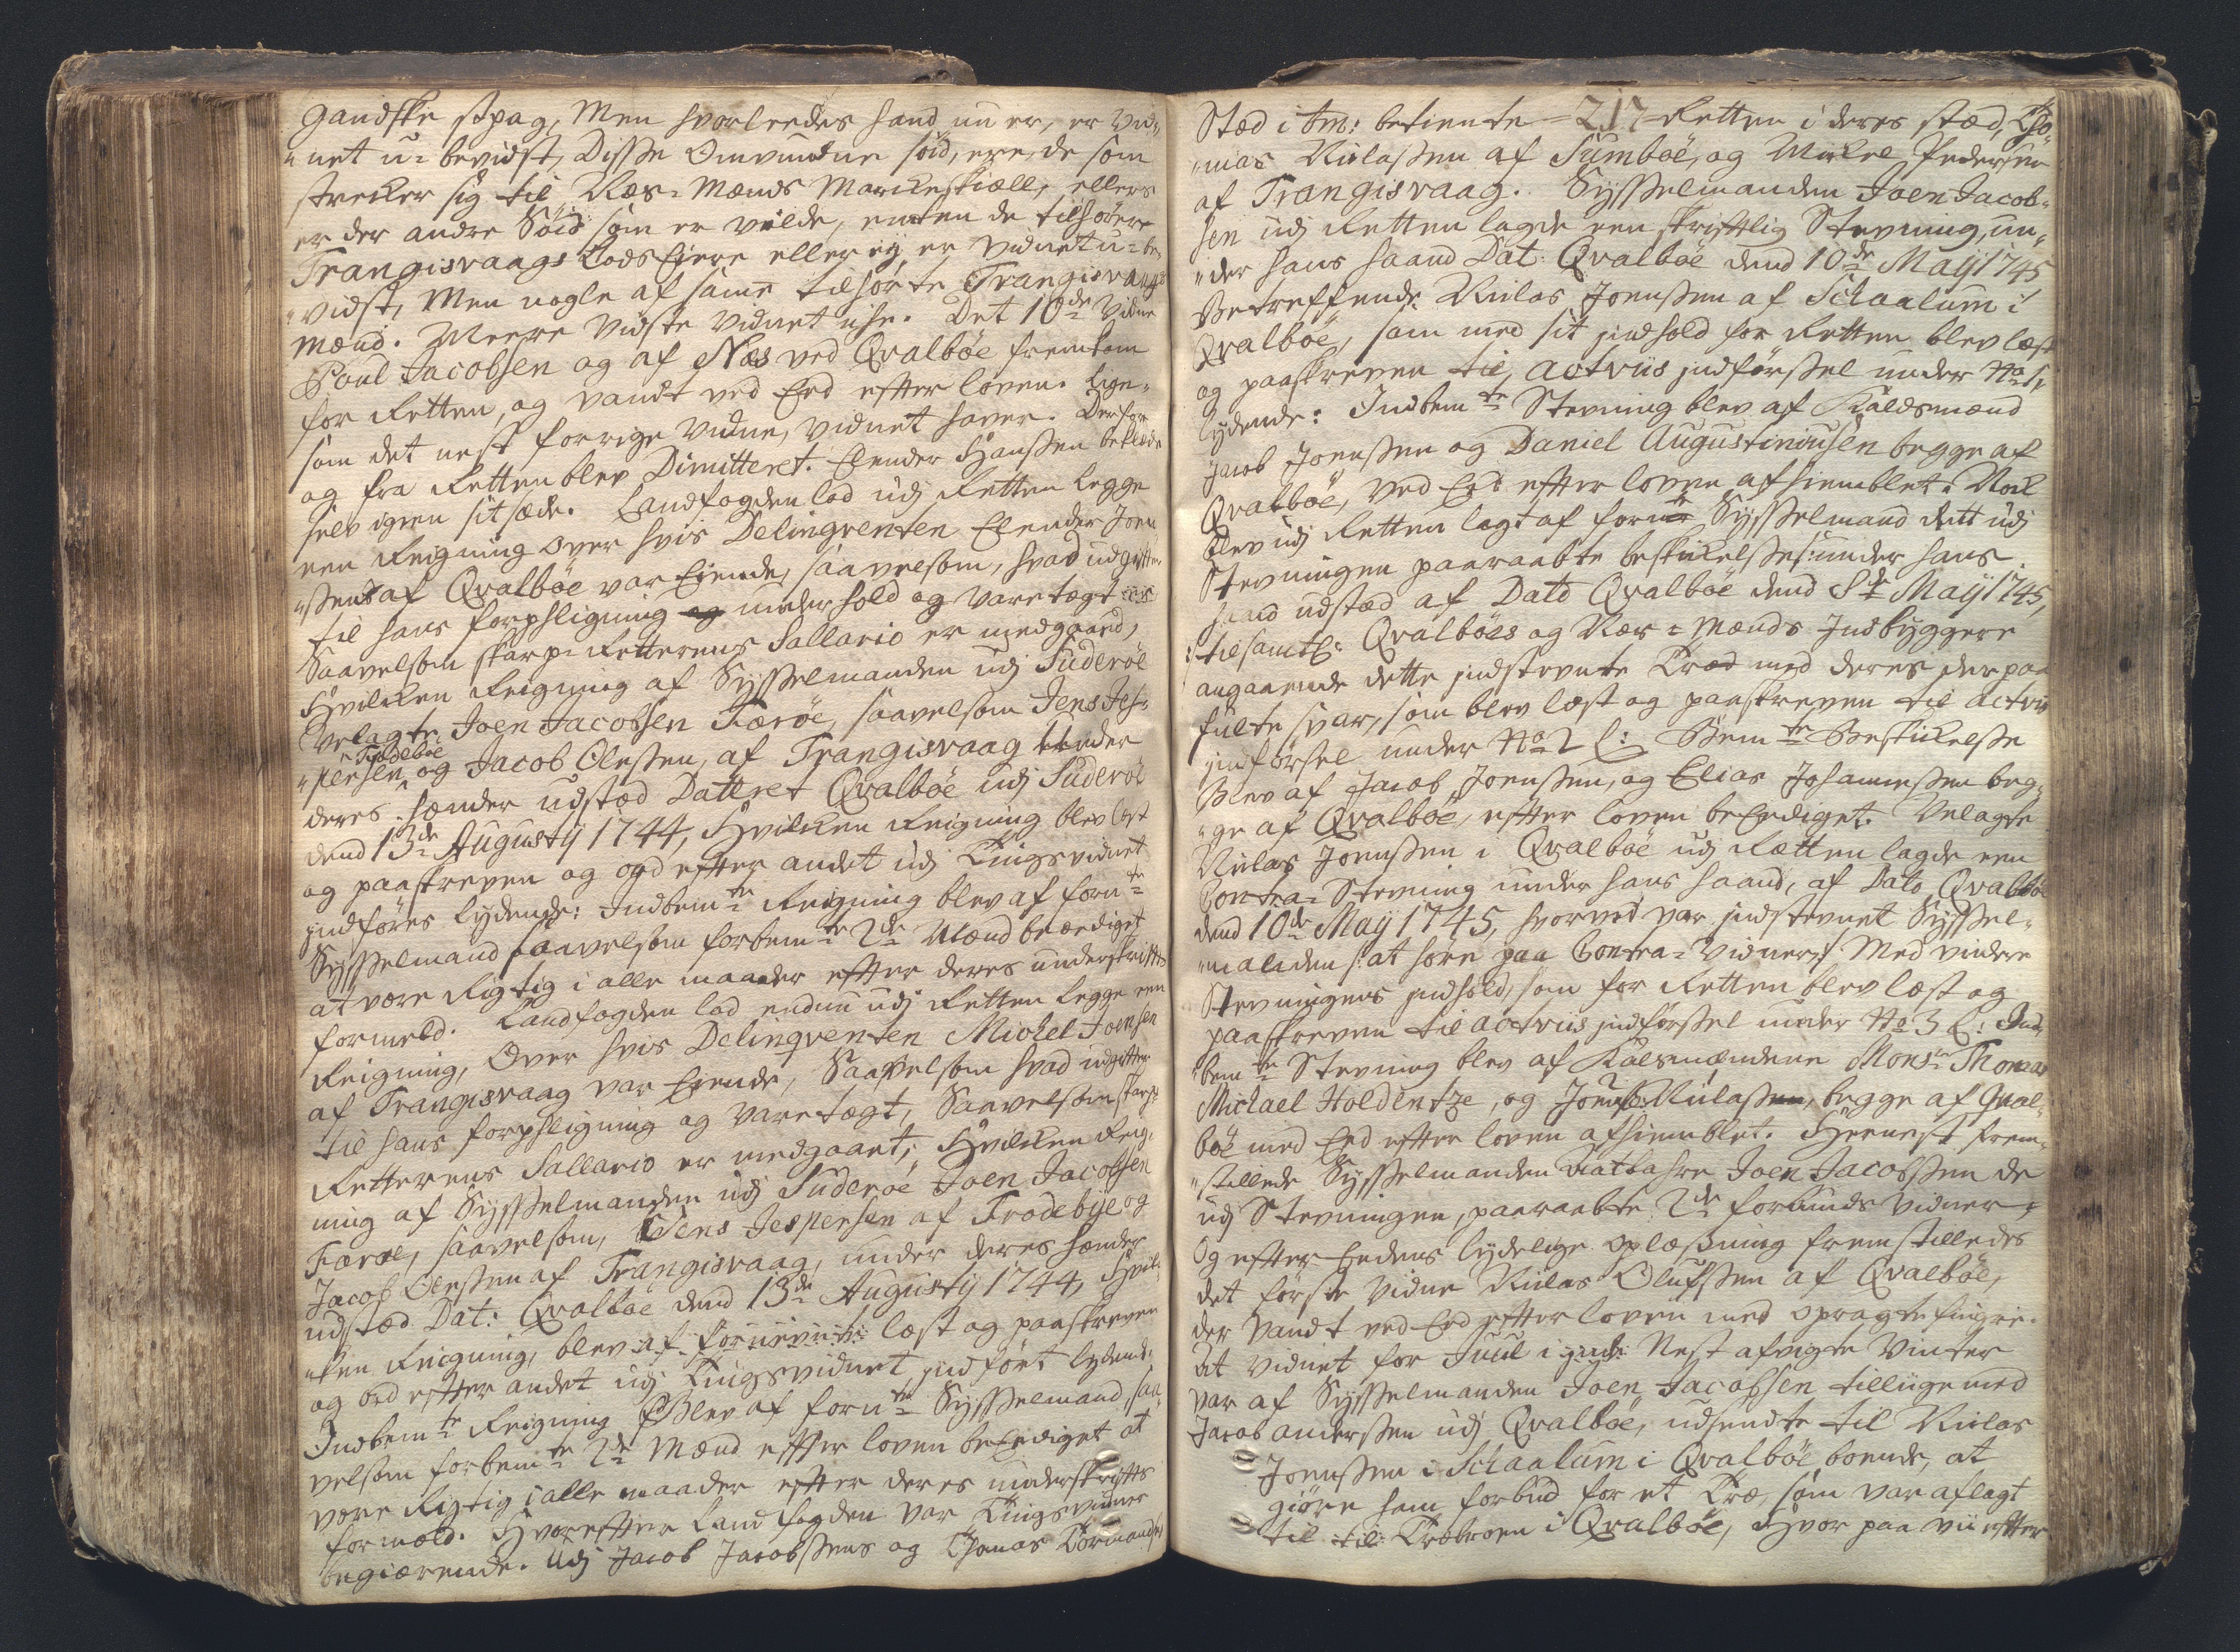 Gandske spag, Men hvorleedes hand nu er, er vid„
„net u-bevidst, Disse Omvundne søid, ere, de som
strecker sig til Næs-Mænds Marckeskiæll, ellers
er der andre Søid som er vilde, enten de tilhører
Trangisvaags Lods Eiere eller ej er vidnet u-be„
„vidst, Men nogle af samme tilhørte Trangisvaags
mænd. Meere vidste vidnet iche. Det 10de vidne
Poul Jacobsen og af Næs ved Qvalböe fremkom
for Retten, og vandt ved Eed efter loven. Lige„
som det nest forrige vidne, vidnet haver. Derfor
og fra Retten blev Dimitteret. Elender Hanssen beklæde
selv igien sit sæde. Landfogden lod udj Retten legge
een Reigning over hvis Delinqventen Elender Joen
„ssens af Qvalböe var Eiende, saavelsom, hvad udgifter
til hans forpligning og underhold og varetægt
Saavelsom skarp-Retterens Sallario er medgaard,
Hvilcken Reigning af Sysselmanden udj Suderöe
Velagte Joen Jacobsen Færöe, saavelsom Jens Jes-
„persen Frodeböe og Jacob Olessen, af Trangisvaag under
deres hænder udstæd Datteret Qvalböe udj Suderöe
dend 13de Augustij 1744, Hvilcken Reigning blev læst
og paaskreven og ord efter andet udj Tingsvidnet
indføres lydende: Indbemte Reigning blev af fornte
Sysselmand saavelsom forbemte 2de Mænd beædiget
at være Rigtig i alle maader efter deres underskrifts
formeld. Landfogden lod endnu udj Retten legge een
Reigning, Over hvis Delinqventen Michel Joensen
af Trangisvaag var Eiende, Saavelsom hvad udgifter
til hans forpligning og varetægt, Saavelsom skarp
Retterens Sallario er medgaaet, Hvilcken Reig„
ning af Sysselmanden udj Suderöe Joen Jacobsen
Færöe, saavelsom, Jens Jespersen af Frodebye og
Jacob Olessen af Trangisvaag, under deres hænder
udstæd Dat: Qvalböe dend 13de Augustij 1744, Hvil„
„ken Reigning, blev af læst og paaskreven
og ord efter andet udj Tingsvidnet indført lydende:
Indbemte Reigning blev af fornte Sysselmand, saa„
velsom forbemte 2de Mænd efter loven beEediget at
være Rigtig i alle maader efter deres underskrifts
formeld. Hvorefter Landfogden var Tingsvidne
begiærende. Udj Jacob Jacobssens og Thomas
Stæd i Am: betiente = 217 = Retten i deres stæd, Tho„
„mas Nielassen af Sumböe, og Mickel Pedersen
af Trangisvaag. Sysselmanden Joen Jacob-
sen udj Retten lagde een skriftlig Stevning, un„
„der hans haand Dat: Qvalböe dend 10de Maij 1745,
Betreffende Nielas Joenssen af Schaalum i
Qvalböe, som med sit indhold for Retten blev læst
og paaskreven til, actviis indførssel under No 1,
lydende: Indbemte Stevning blev af Kaldsmænd
Jacob Joenssen og Daniel Augustinussen begge af
Qvalböe, ved Eed efter loven afhiemblet. Nock
blev udj Retten lagt af fornte Sysselmand dett udj
Stevningen paaraabte beskickelse under hans
haand udstæd af Dato Qvalböe dend 8de Maij 1745,
til samtl: Qvalböes og Næs-Mænds Indbyggere
angaaende dette indstevnte Træe med deres der paa
fulte svar, som blev læst og paaskreven til actviis
indførsel under No 2 l: Bemte Beskickelsse
Blev af Jacob Joenssen, og Elias Johannessen beg„
„ge af Qvalböe, efter loven beEediget. Velagte
Nielas Joenssen i Qvalböe udj Rætten lagde een
Contra-Stevning under hans haand, af Dato Qvalböe
dend 10de Maij 1745, hvorved var indstevnet Syssel-
„manden at høre paa Contra-Vidner, Med videre
Stevningens indhold, som for Retten blev læst og
paaskreven til actviis indførssel under No 3 l: Ind
bemte Stevning blev af Kalsmændene Monsr Thomas
Michael Holdentze, og Joen Nielassen, begge af Qval-
böe med Eed efter loven afhiemblet. Hernest frem„
„stillede Sysselmanden Joen Jacobssen de
udj Stevningen, paaraabte 2de forbuds vidner,
Og efter Eedens lydelige oplæsning fremstilledes
det første vidne Nielas Olufssen af Qvalböe,
der vandt ved Eed efter loven med opragte fingre.
At vidnet for Juul i Nest afvigte Vinter
var af Sysselmanden Joen Jacobsen tilliige med
Jacob Anderssen udj Qvalböe, udsendte til Nielas
Joenssen i Schaalum i Qvalböe boende, at
giöre ham forbud for et Træe, som var aflagt
til Qvalböe, Hvor paa vii efter